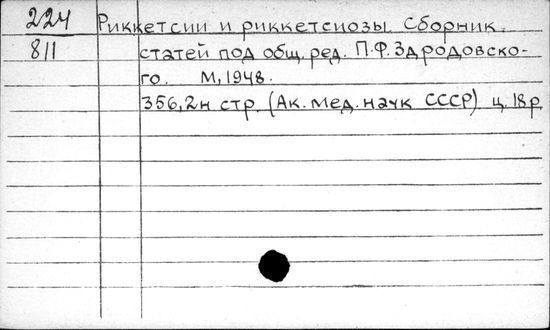 224 Риккетсии и риккетсиозы. Сборник.
811 статей под общ. ред. П.Ф. Здродовско-
го. М, 1948.
356, 2н стр. (Ак. мед. наук СССР) ц. 18 р.